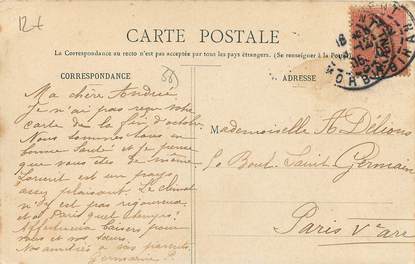 12+
CARTE POSTALE
La Correspondance au recto n'est pas acceptée par tous les pays étrangers. (Se renseigner à la Poste)
CORRESPONDANCE
ADRESSE
56
Ma chère Andrée
Je n'ai pas reçu votre
carte de la fin d'octobre.
Nous sommes tous en
bonne santé et je pense
que vous êtes de même
Lorient est un pays
assez plaisant. Le climat
n'y est pas rigoureux
et à Paris quel temps?
Affectueux baisers pour
vous et vos sœurs.
Nos amitiés à vos parents
Germaine P.
Mademoiselle A Délions
Boul. Saint Germain
Paris Ve arr
MORBIHAN